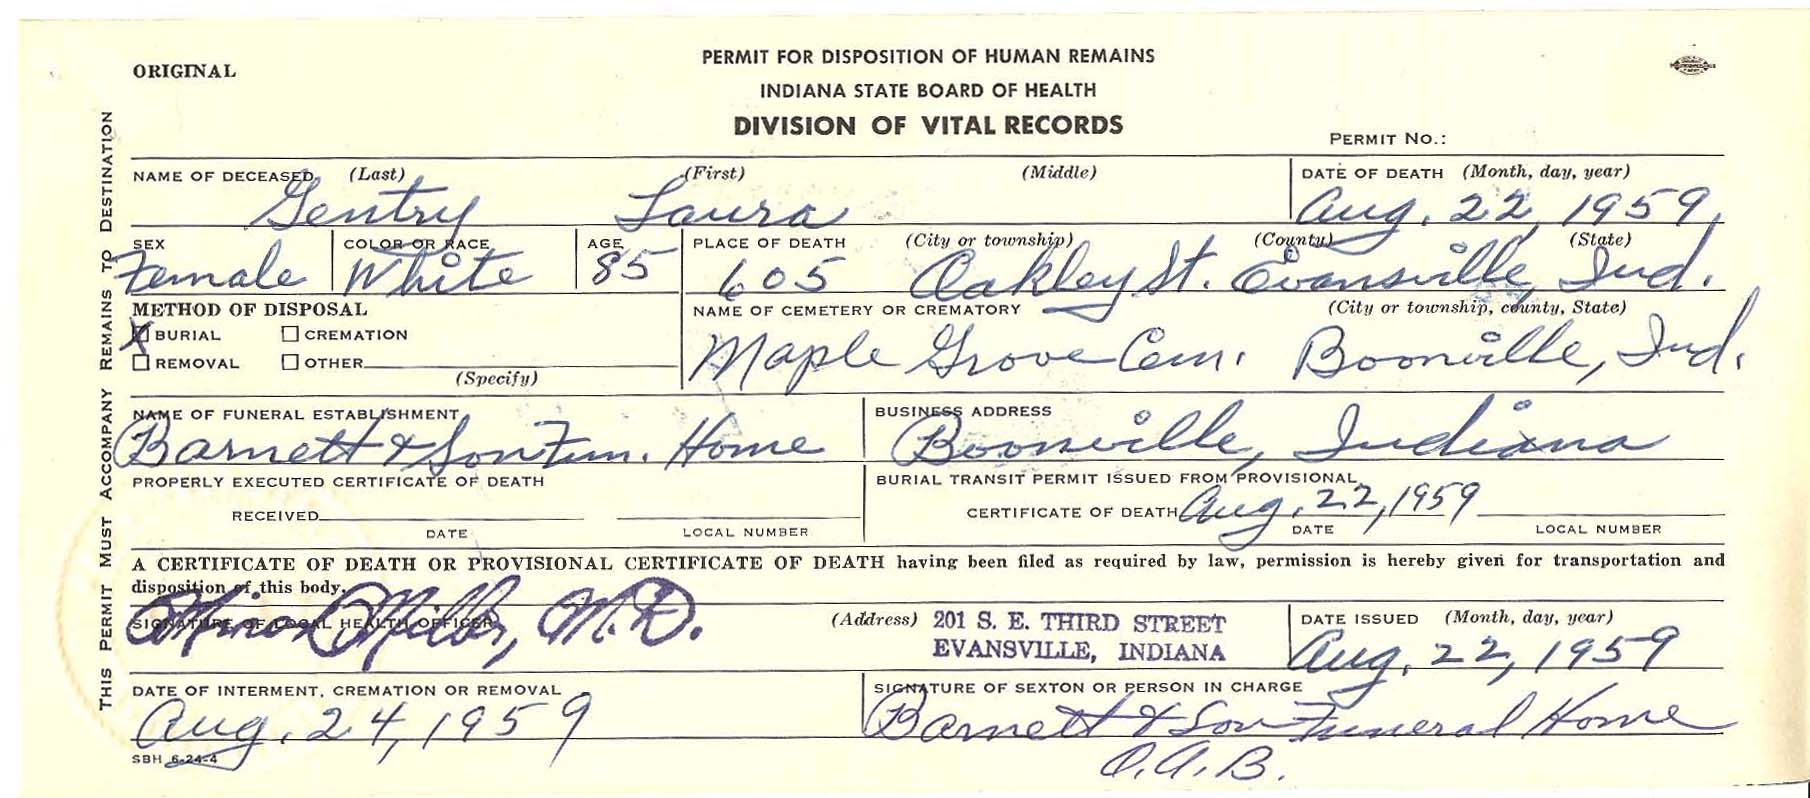 ORIGINAL
PERMIT FOR DISPOSITION OF HUMAN REMAINS
INDIANA STATE BOARD OF HEALTH
DIVISION OF VITAL RECORDS
PERMIT NO.:
THIS PERMIT MUST ACCOMPANY REMAINS TO DESTINATION
NAME OF DECEASED (Last) (First) (Middle) DATE OF DEATH (Month, day, year)
Gentry Laura Aug. 22, 1959
SEX COLOR OR RACE AGE PLACE OF DEATH (City or township) (County) (State)
Female White 85 605 Oakley St. Evansville, Ind.
METHOD OF DISPOSAL NAME OF CEMETERY OR CREMATORY (City or township, county, State)
X BURIAL CREMATION
Maple Grove Cem. Boonville, Ind.
REMOVAL OTHER
(Specify)
NAME OF FUNERAL ESTABLISHMENT BUSINESS ADDRESS
Barnett & Son Fun. Home Boonville, Indiana
PROPERLY EXECUTED CERTIFICATE OF DEATH BURIAL TRANSIT PERMIT ISSUED FROM PROVISIONAL
RECEIVED CERTIFICATE OF DEATH Aug. 22, 1959
DATE LOCAL NUMBER DATE LOCAL NUMBER
A CERTIFICATE OF DEATH OR PROVISIONAL CERTIFICATE OF DEATH having been filed as required by law, permission is hereby given for transportation and
disposition of this body.
SIGNATURE OF LOCAL HEALTH OFFICER (Address) 201 S. E. THIRD STREET DATE ISSUED (Month, day, year)
Minor Miller, M.D. EVANSVILLE, INDIANA Aug. 22, 1959
DATE OF INTERMENT, CREMATION OR REMOVAL SIGNATURE OF SEXTON OR PERSON IN CHARGE
Aug. 24, 1959 Barnett & Son Funeral Home
SBH 6-24-4 O.A.B.